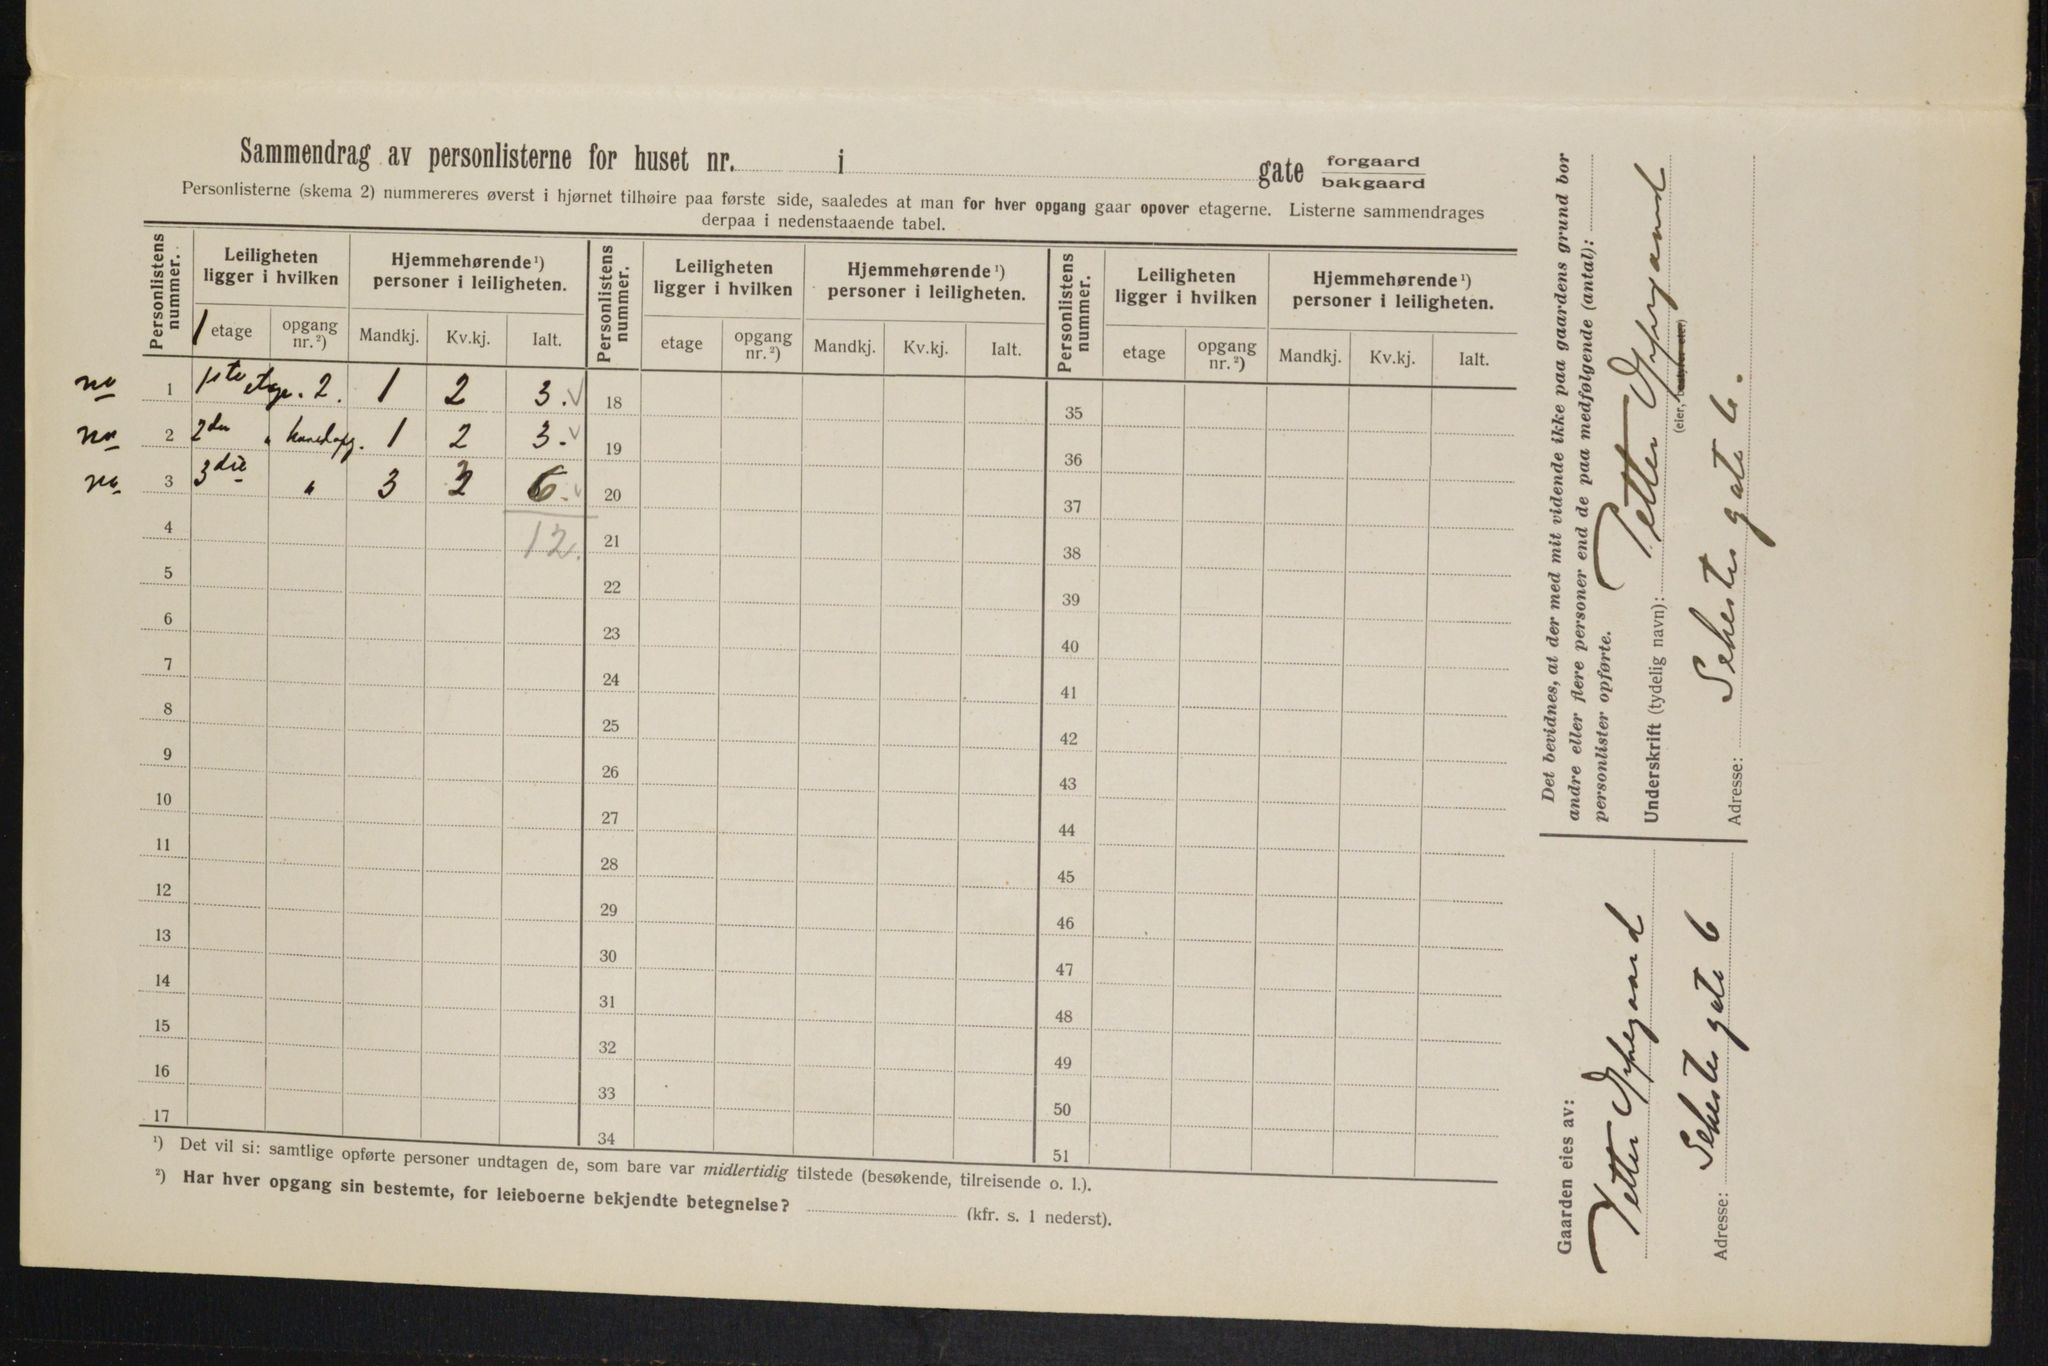 Sammendrag av personlisterne for huset nr. i gate forgaard
bakgaard
Personlisterne (skema 2) nummereres øverst i hjørnet tilhøire paa første side, saaledes at man for hver opgang gaar opover etagerne. Listerne sammendrages
derpaa i nedenstaaende tabel.
Personlistens nummer. Leiligheten ligger i hvilken Hjemmehørende ¹) personer i leiligheten. Personlistens nummer. Leiligheten ligger i hvilken Hjemmehørende ¹) personer i leiligheten. Personlistens nummer. Leiligheten ligger i hvilken Hjemmehørende ¹) personer i leiligheten.
etage opgang nr. ²) Mandkj. Kv.kj. Ialt. etage opgang nr. ²) Mandkj. Kv.kj. Ialt. etage opgang nr. ²) Mandkj. Kv.kj. Ialt.
no 1 1ste etage. 2. 1 2 3. 18 35
no 2 2den " 1 2 3. 19 36
no 3 3die " 3 6. 20 37
4 12. 21 38
5 22 39
6 23 40
7 24 41
8 25 42
9 26 43
10 27 44
11 28 45
12 29 46
13 30 47
14 31 48
15 32 49
16 33 50
17 34 51
¹) Det vil si: samtlige opførte personer undtagen de, som bare var midlertidig tilstede (besøkende, tilreisende o. l.).
²) Har hver opgang sin bestemte, for leieboerne bekjendte betegnelse? (kfr. s. 1 nederst).
Det bevidnes, at der med mit vidende ikke paa gaardens grund bor
andre eller flere personer end de paa medfølgende (antal):
personlister opførte.
Underskrift (tydelig navn): Petter Oppegaard
(eier,
Adresse: Sehesteds gate 6.
Gaarden eies av:
Petter Oppegaard
Adresse: Sehesteds gate 6